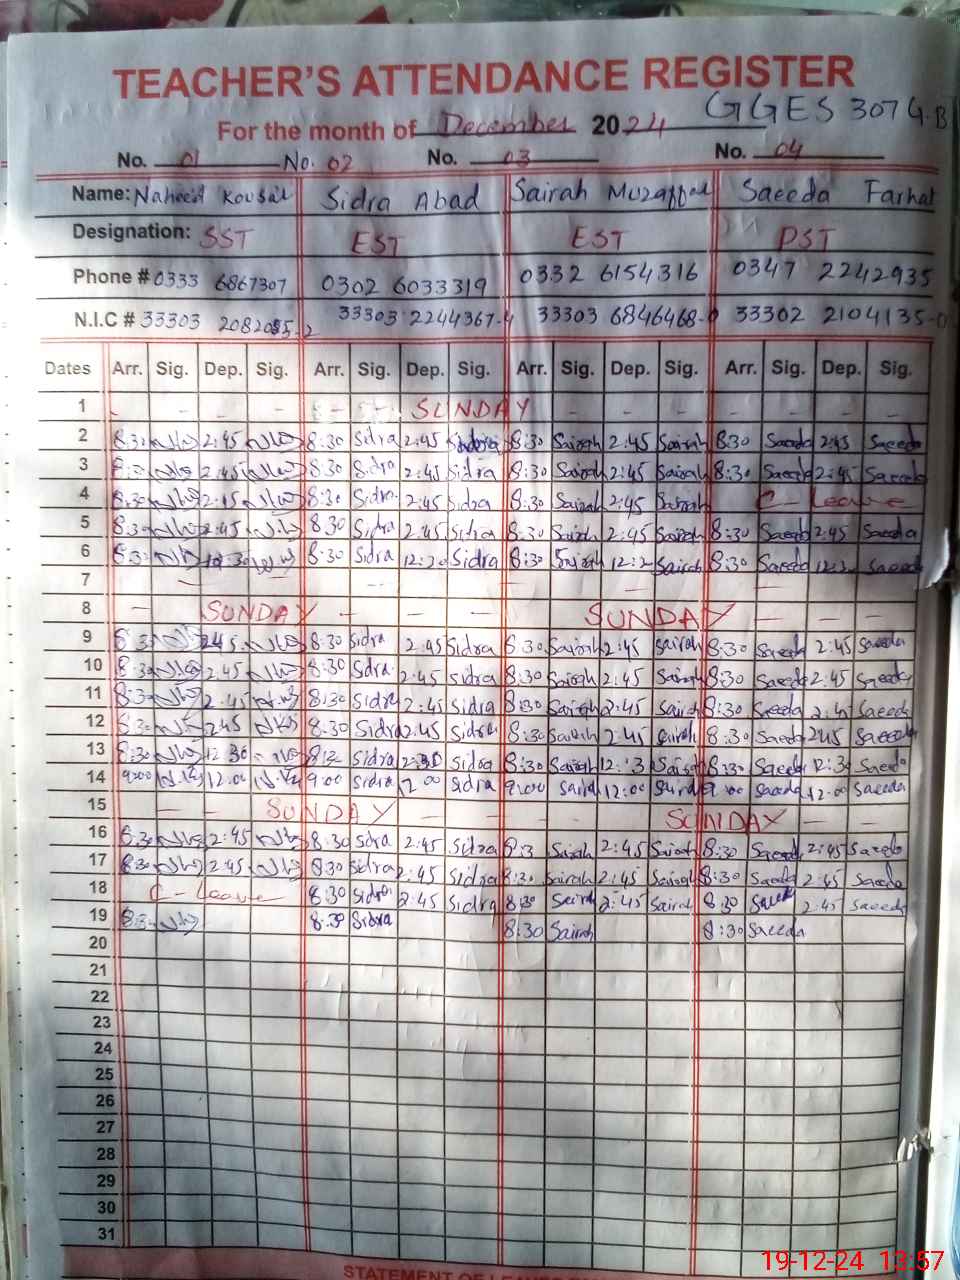 TEACHER'S ATTENDANCE REGISTER
For the month of December 2024 GGES 307 G.B
No. 01 No. 02 No. 03 No. 04
Name: Naheed Kousar Sidra Abad Sairah Muzaffar Saeeda Farhat
Designation: SST EST EST PST
Phone # 0333 6867307 0302 6033319 0332 6154316 0347 2242935
N.I.C # 33303 33303 2244367-4 33303 6846468- 33302 2104135-0
Dates Arr. Sig. Dep. Sig. Arr. Sig. Dep. Sig. Arr. Sig. Dep. Sig. Arr. Sig. Dep. Sig.
1 - - - - - - SUNDAY - - - - - -
2 8:30 2:45 8:30 Sidra 2:45 Sidra 8:30 Sairah 2:45 Sairah 8:30 Saeeda 2:45 Saeeda
3 2:45 8:30 Sidra 2:45 Sidra 8:30 Sairah 2:45 Sairah 8:30 Saeeda 2:45 Saeeda
4 8:30 2:45 8:30 Sidra 2:45 Sidra 8:30 Sairah 2:45 Sairah C-Leave
5 8:30 2:45 8 30 Sidra 2:45 Sidra 8:30 Sairah 2:45 Sairah 8:30 Saeeda 2:45 Saeeda
6 8:30 Sidra Sidra 8:30 Sairah Sairah 8:30 Saeeda Saeeda
7 - - - - - -
8 - SUNDAY - - - - SUNDAY - - -
9 8:30 2:45 8:30 Sidra 2:45 Sidra 8:30 Sairah 2:45 Sairah 8:30 Saeeda 2:45 Saeeda
10 8:30 2:45 8:30 Sidra 2:45 Sidra 8:30 Sairah 2:45 Sairah 8:30 Saeeda 2:45 Saeeda
11 8:30 2:45 8:30 Sidra 2:45 Sidra 8:30 Sairah 2:45 Sairah 8:30 Saeeda 2:45 Saeeda
12 8:30 2:45 8:30 Sidra 2:45 Sidra 8:30 Sairah 2:45 Sairah 8:30 Saeeda 2:45 Saeeda
13 8:30 12 30 Sidra Sidra 8:30 Sairah Sairah 8:30 Saeeda 12:30 Saeeda
14 9:00 12:00 9:00 Sidra 12 00 Sidra 9:00 Sairah 12:00 Sairah 9:00 Saeeda 12:00 Saeeda
15 - - SUNDAY - - - - SUNDAY - -
16 8:30 2:45 8:30 Sidra 2:45 Sidra Sairah 2:45 Sairah 8:30 Saeeda 2:45 Saeeda
17 8:30 2:45 8:30 Sidra 2:45 Sidra 8:30 Sairah 2:45 Sairah 8:30 Saeeda 2:45 Saeeda
18 C-Leave 8:30 Sidra 2:45 Sidra 8:30 Sairah 2:45 Sairah 8:30 Saeeda 2:45 Saeeda
19 8:30 Sidra 8:30 Sairah 8:30 Saeeda
20
21
22
23
24
25
26
27
28
29
30
31
STATEMENT OF LEAVES
19-12-24 13:57